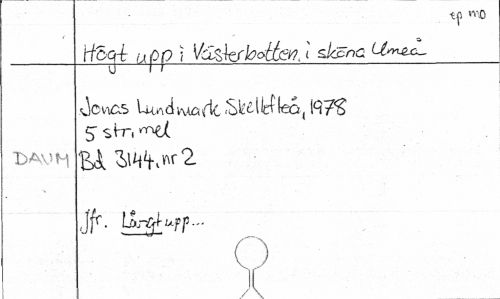 ep mo
Högt upp i Västerbotten, i sköna Umeå
Jonas Lundmark, Skellefteå, 1978
5 str, mel
DAUM Bd 3144, nr 2
Jfr. Långt upp...